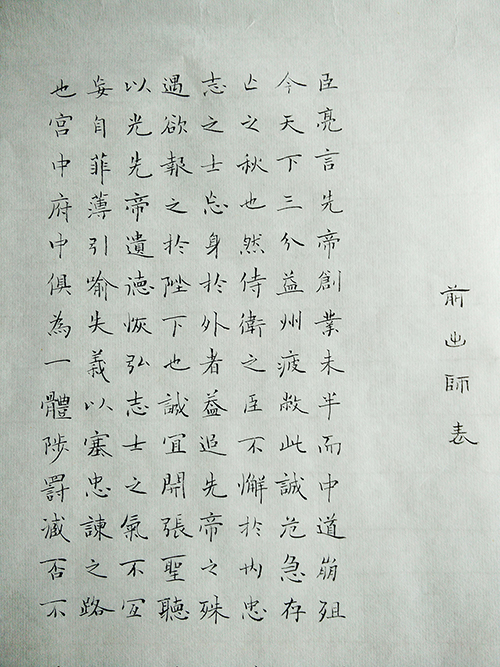 前出師表
臣亮言先帝創業未半而中道崩殂
今天下三分益州疲敝此誠危急存
亡之秋也然侍衛之臣不懈於內忠
志之士忘身於外者蓋追先帝之殊
遇欲報之於陛下也誠宜開張聖聽
以光先帝遺德恢弘志士之氣不宜
妄自菲薄引喻失義以塞忠諫之路
也宮中府中俱為一體陟罰臧否不